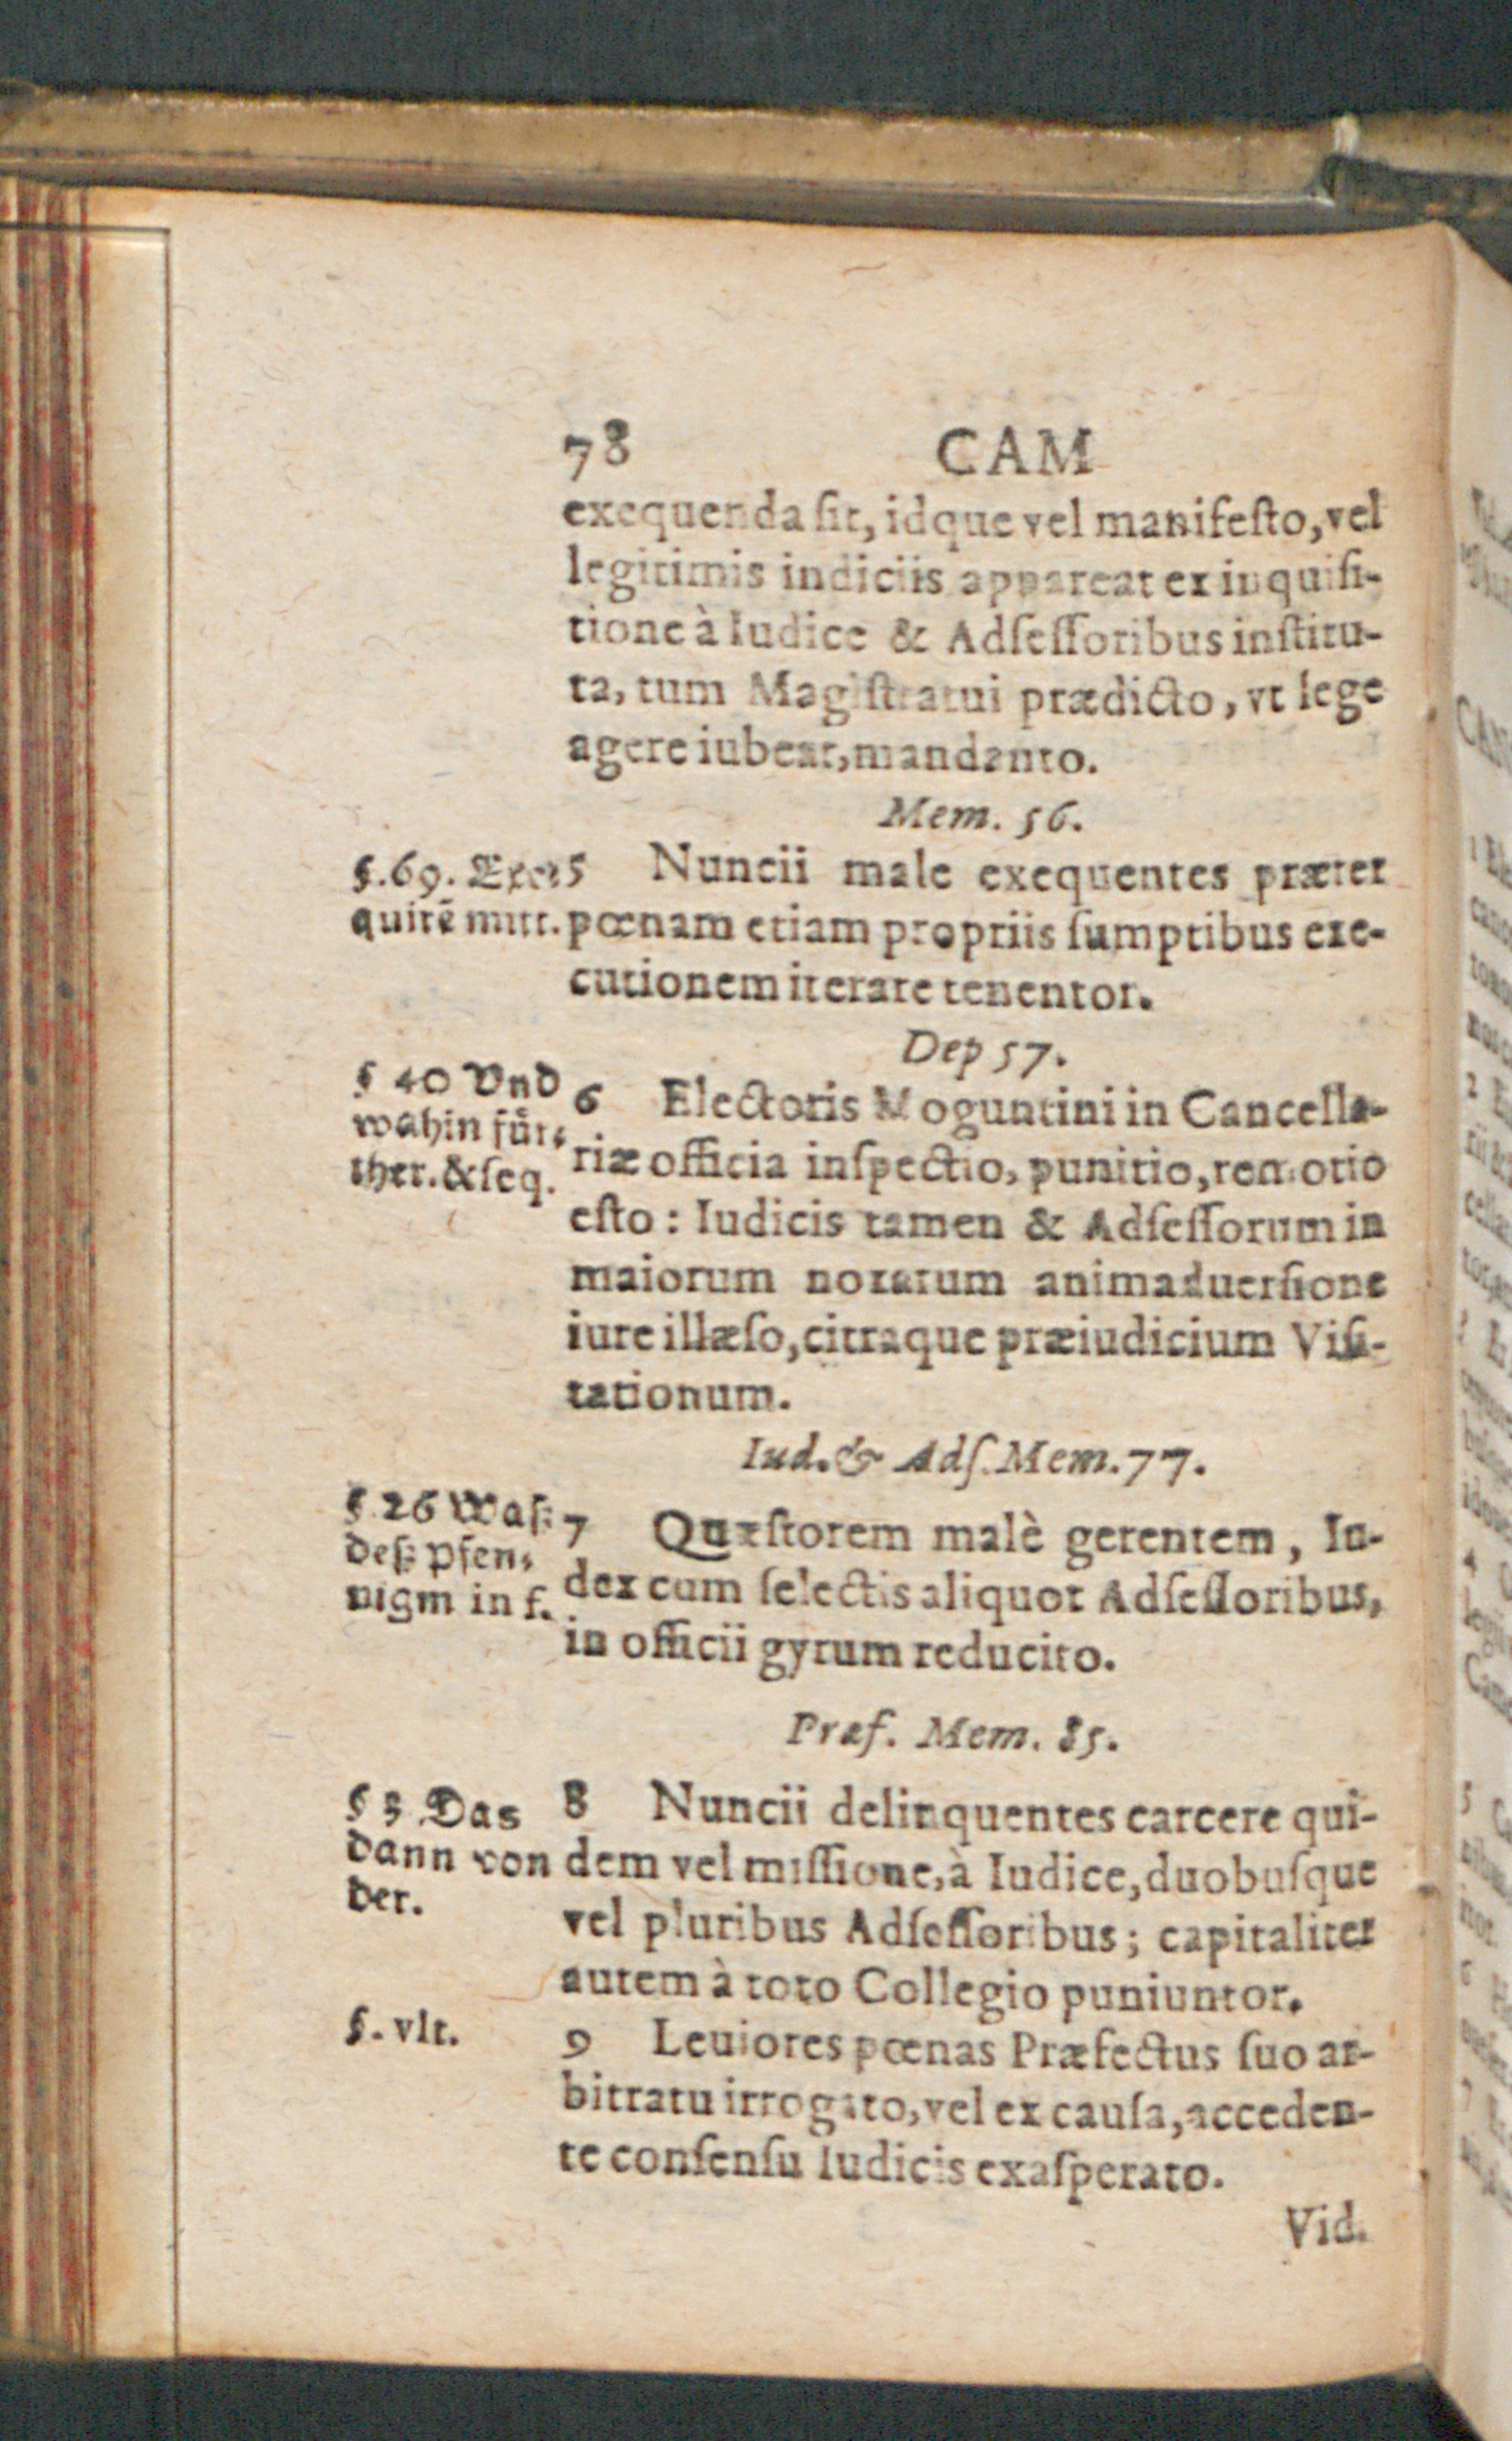 78 CAM
exequenda ſit, idque vel manifeſto, vel
legitimis indiciis appareat ex inquiſi-
tione à Iudice & Adſeſſoribus inſtitu-
ta, tum Magiſtratui prædicto, vt lege
agere iubeat, mandanto.
Mem. 56.
§. 69. Exe-
quirē mitt.
5 Nuncii male exequentes præter
pœnam etiam propriis ſumptibus exe-
cutionem iterare tenentor.
Dep 57.
§ 40 Vnd
wahin für-
ther. & ſeq.
6 Electoris Moguntini in Cancella-
riæ officia inſpectio, punitio, remotio
eſto: Iudicis tamen & Adſeſſorum in
maiorum noxarum animaduerſione
iure illæſo, citraque præiudicium Viſi-
tationum.
Iud. & Adſ. Mem. 77.
§ 26 Waſ:
deſ: pfen-
nigm in f.
7 Quæſtorem malè gerentem, Iu-
dex cum ſelectis aliquot Adſeſſoribus,
in officii gyrum reducito.
Præf. Mem. 85.
§ 3 Das
dann von
der.
8 Nuncii delinquentes carcere qui-
dem vel miſſione, à Iudice, duobuſque
vel pluribus Adſeſſoribus; capitaliter
autem à toto Collegio puniuntor.
§. vlt.
9 Leuiores pœnas Præfectus ſuo ar-
bitratu irrogato, vel ex cauſa, acceden-
te conſenſu Iudicis exaſperato.
Vid.